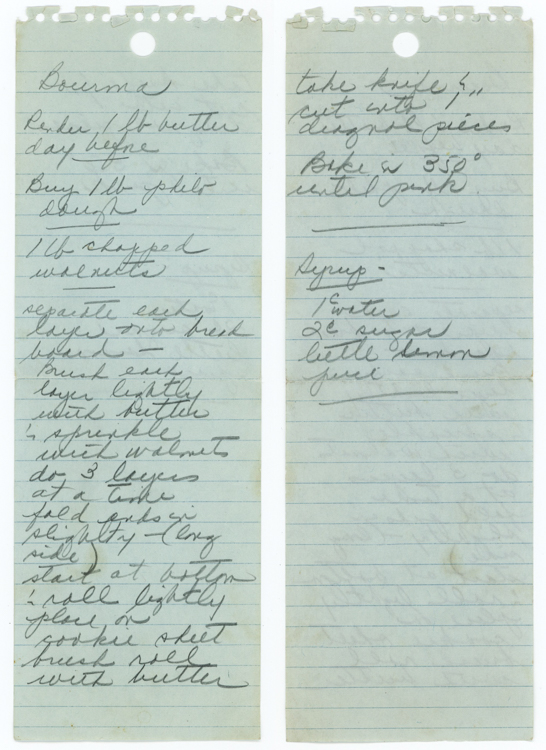 Bourma
Render 1 lb butter
day before
Buy 1 lb philo
dough
1 lb chopped
walnuts
separate each
layer onto bread
board —
Brush each
layer lightly
with butter
& sprinkle
with walnuts
do 3 layers
at a time
fold ends in
slightly - (long
side)
start at bottom
& roll lightly
place on
cookie sheet
brush roll
with butter
take knife &
cut into
diagnol pieces
Bake in 350°
until pink
Syrup -
1 c water
2 c sugar
little lemon
juice